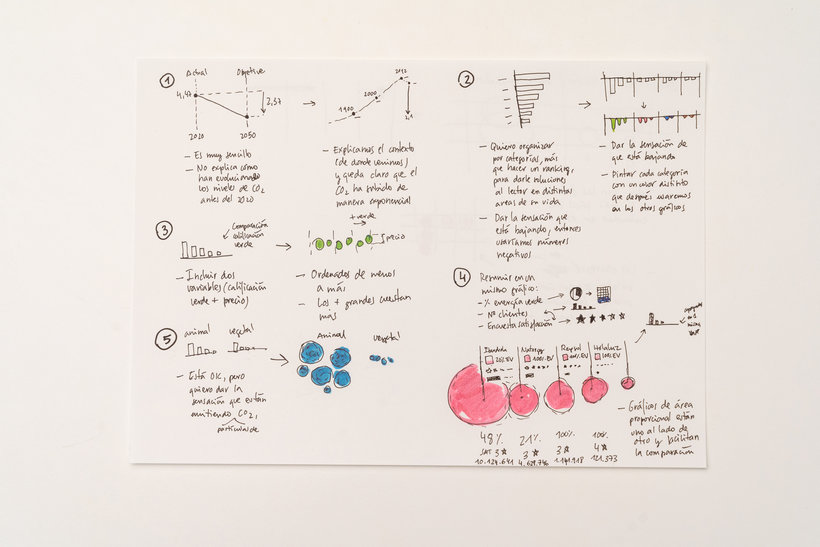 1
Actual Objetivo
4,47
2,57
2020 2050
- Es muy sencillo
- No explica cómo
han evolucionado
los niveles de CO2
antes del 2020
1900
2000
2012
- Explicamos el contexto
(de donde venimos)
y queda claro que el
CO2 ha subido de
manera exponencial
2
- Quiero organizar
por categorías, más
que hacer un ranking,
para darle soluciones
al lector en distintas
areas de su vida
- Dar la sensación que
está bajando, entonces
usaríamos números
negativos
- Dar la sensación de
que está bajando
- Pintar cada categoría
con un color distinto
que después usaremos
en los otros gráficos
3
Comparación
calificación
verde
- Incluir dos
variables (calificación
verde + precio)
+ verde
precio
- Ordenados de menos
a más
- Los + grandes cuestan
más
4
Resumir en un
mismo gráfico:
- % energía verde
- Nº clientes
- Encuesta satisfacción
Iberdrola Naturgy Repsol Holaluz
100% EV
48% 21% 100% 100%
SAT 3 3 3 4
10.124.641 4.629.746 1.141.918 121.373
- Gráficos de área
proporcional están
uno al lado de
otro y facilitan
la comparación
5
animal vegetal
- Está OK, pero
quiero dar la
sensación que están
emitiendo CO2,
partículas de
Animal vegetal